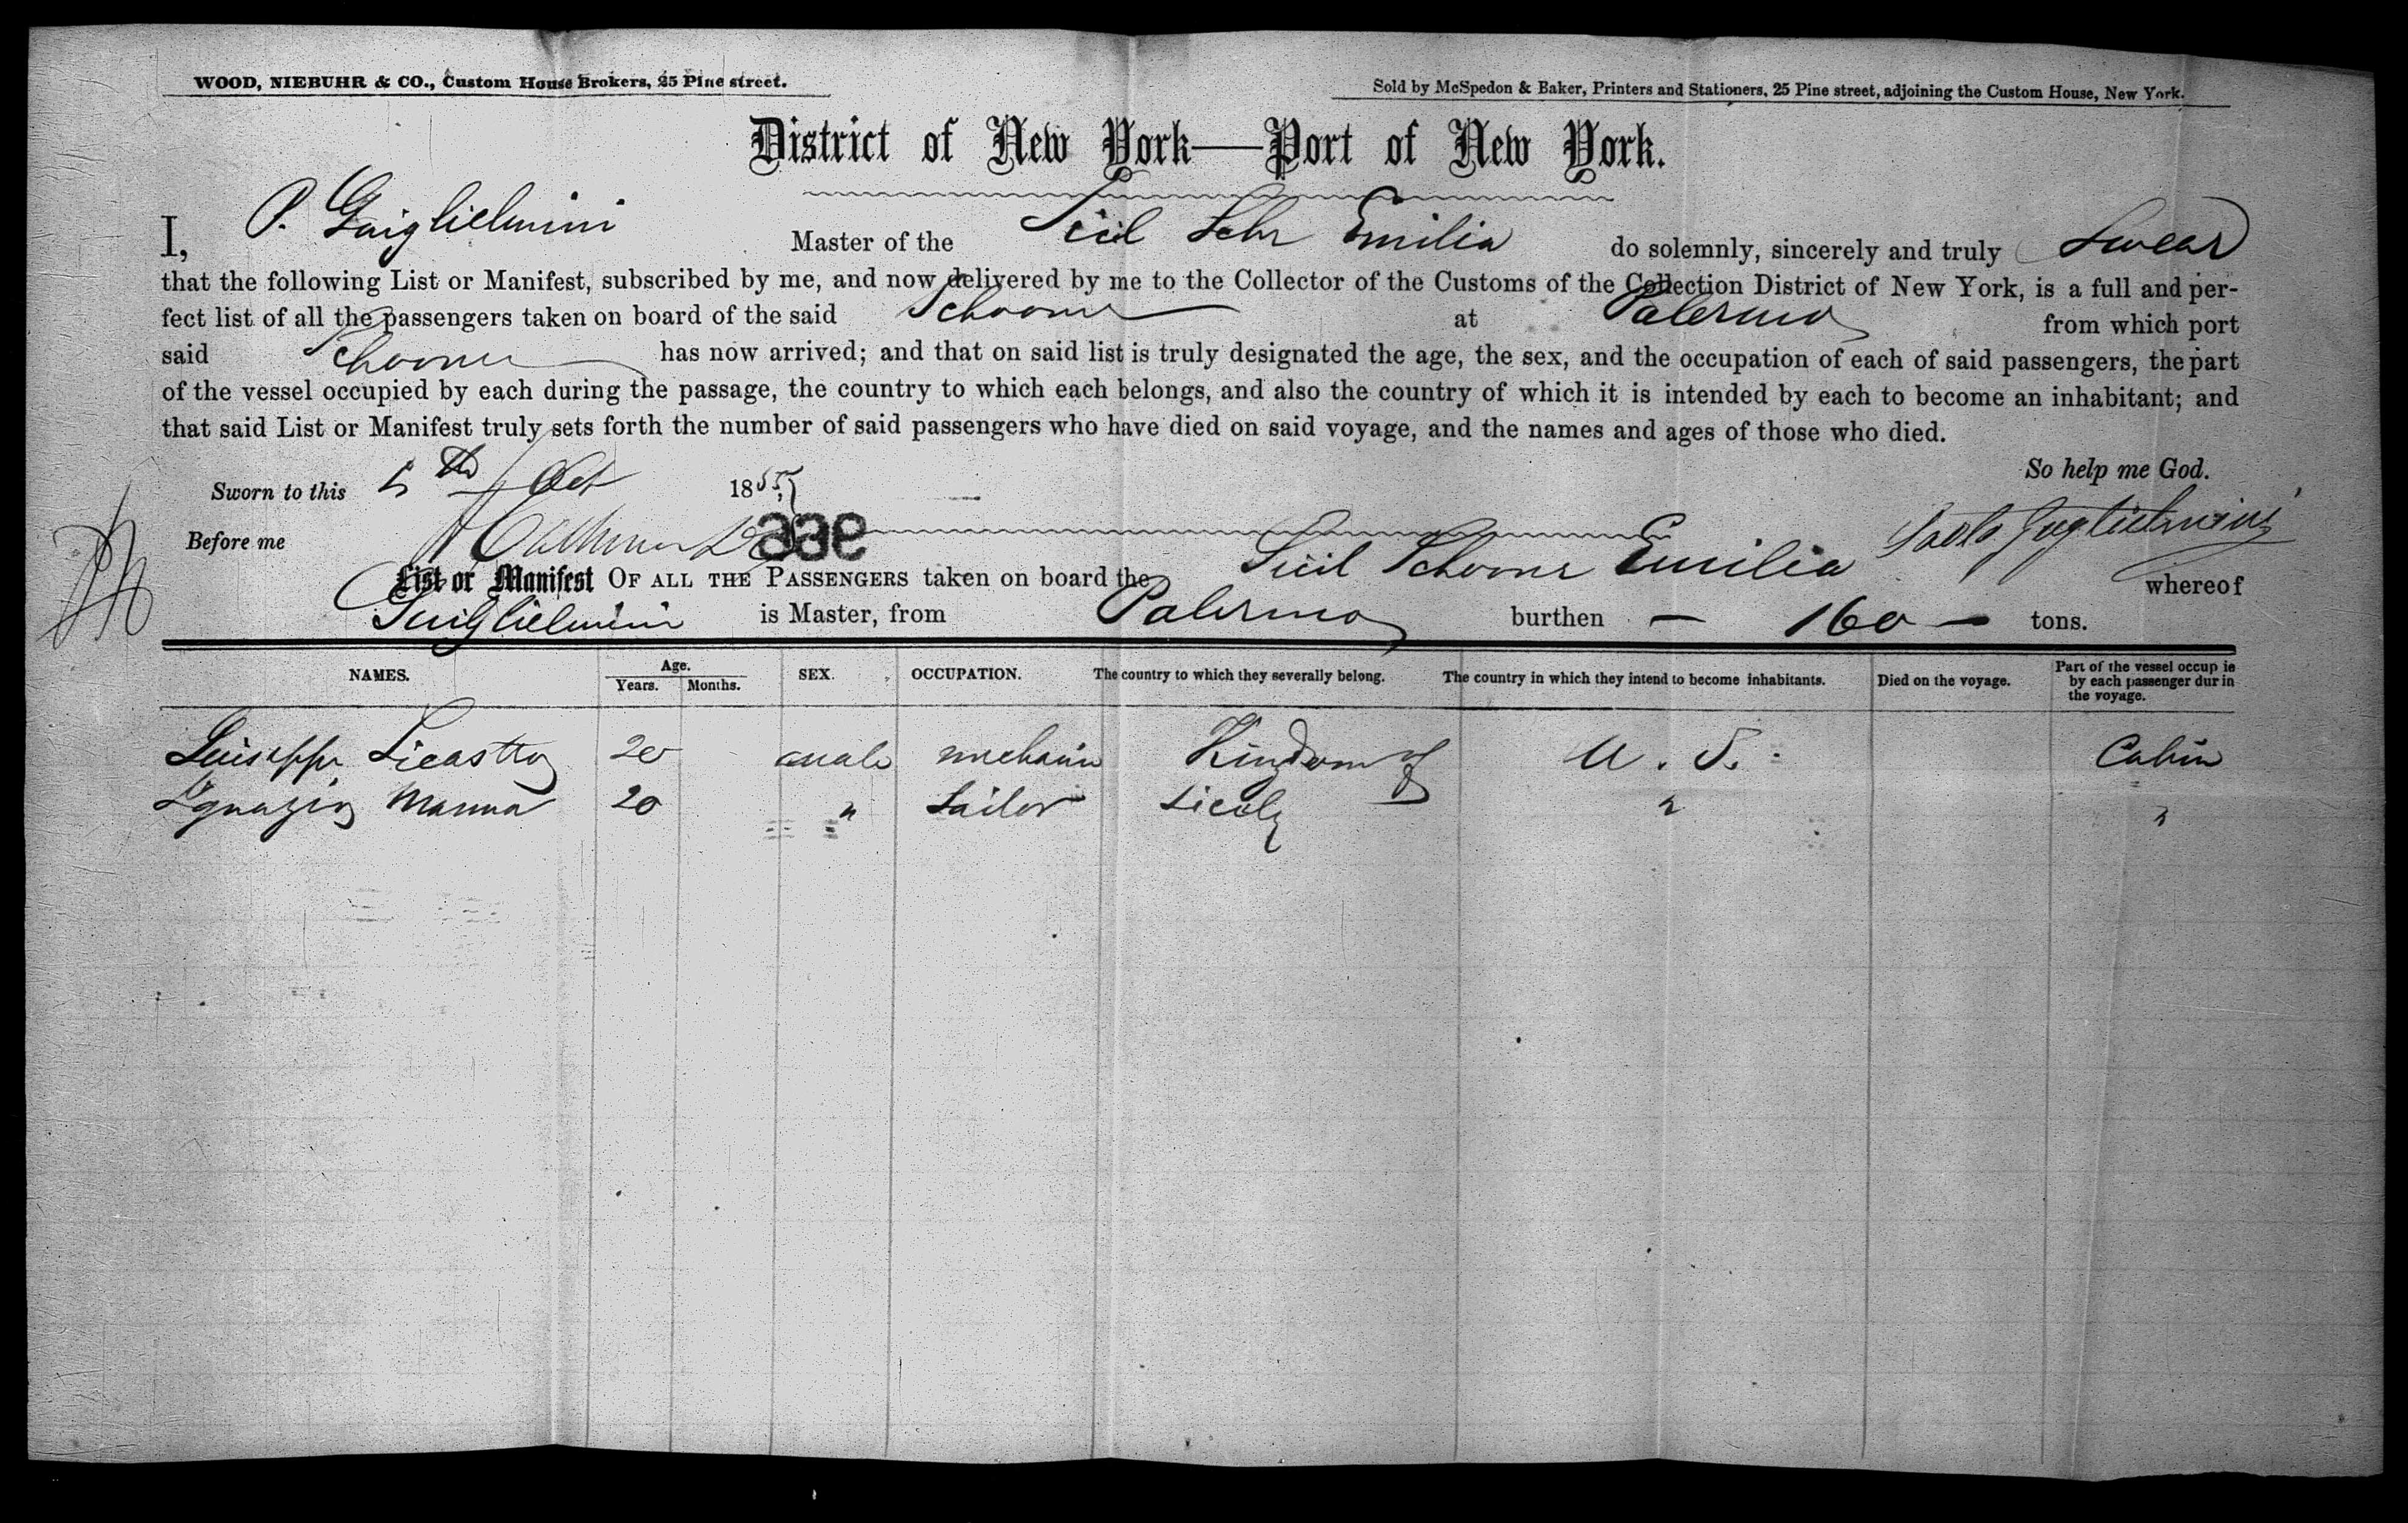 WOOD, NIEBUHR & CO., Custom House Brokers, 25 Pine street.
Sold by McSpedon & Baker, Printers and Stationers, 25 Pine street, adjoining the Custom House, New York.
District of New York—Port of New York.
I, P. Guiglielmini Master of the Sicil Schr Emilia do solemnly, sincerely and truly Swear
that the following List or Manifest, subscribed by me, and now delivered by me to the Collector of the Customs of the Collection District of New York, is a full and per-
fect list of all the passengers taken on board of the said Schooner at Palermo from which port
said Schooner has now arrived; and that on said list is truly designated the age, the sex, and the occupation of each of said passengers, the part
of the vessel occupied by each during the passage, the country to which each belongs, and also the country of which it is intended by each to become an inhabitant; and
that said List or Manifest truly sets forth the number of said passengers who have died on said voyage, and the names and ages of those who died.
So help me God.
Sworn to this 5th Oct 1855
Before me
Paolo Guglielmini
List or Manifest OF ALL THE PASSENGERS taken on board the Sicil Schooner Emilia whereof
Guiglielmini is Master, from Palermo burthen — 160 — tons.
NAMES. Age. Years. Months. SEX. OCCUPATION. The country to which they severally belong. The country in which they intend to become inhabitants. Died on the voyage. Part of the vessel occup ie by each passenger dur in the voyage.
Guiseppe Licastro 20 male mechanic Kingdom of U. S. Cabin
Ignazio Manna 20 " Sailor Sicily " "